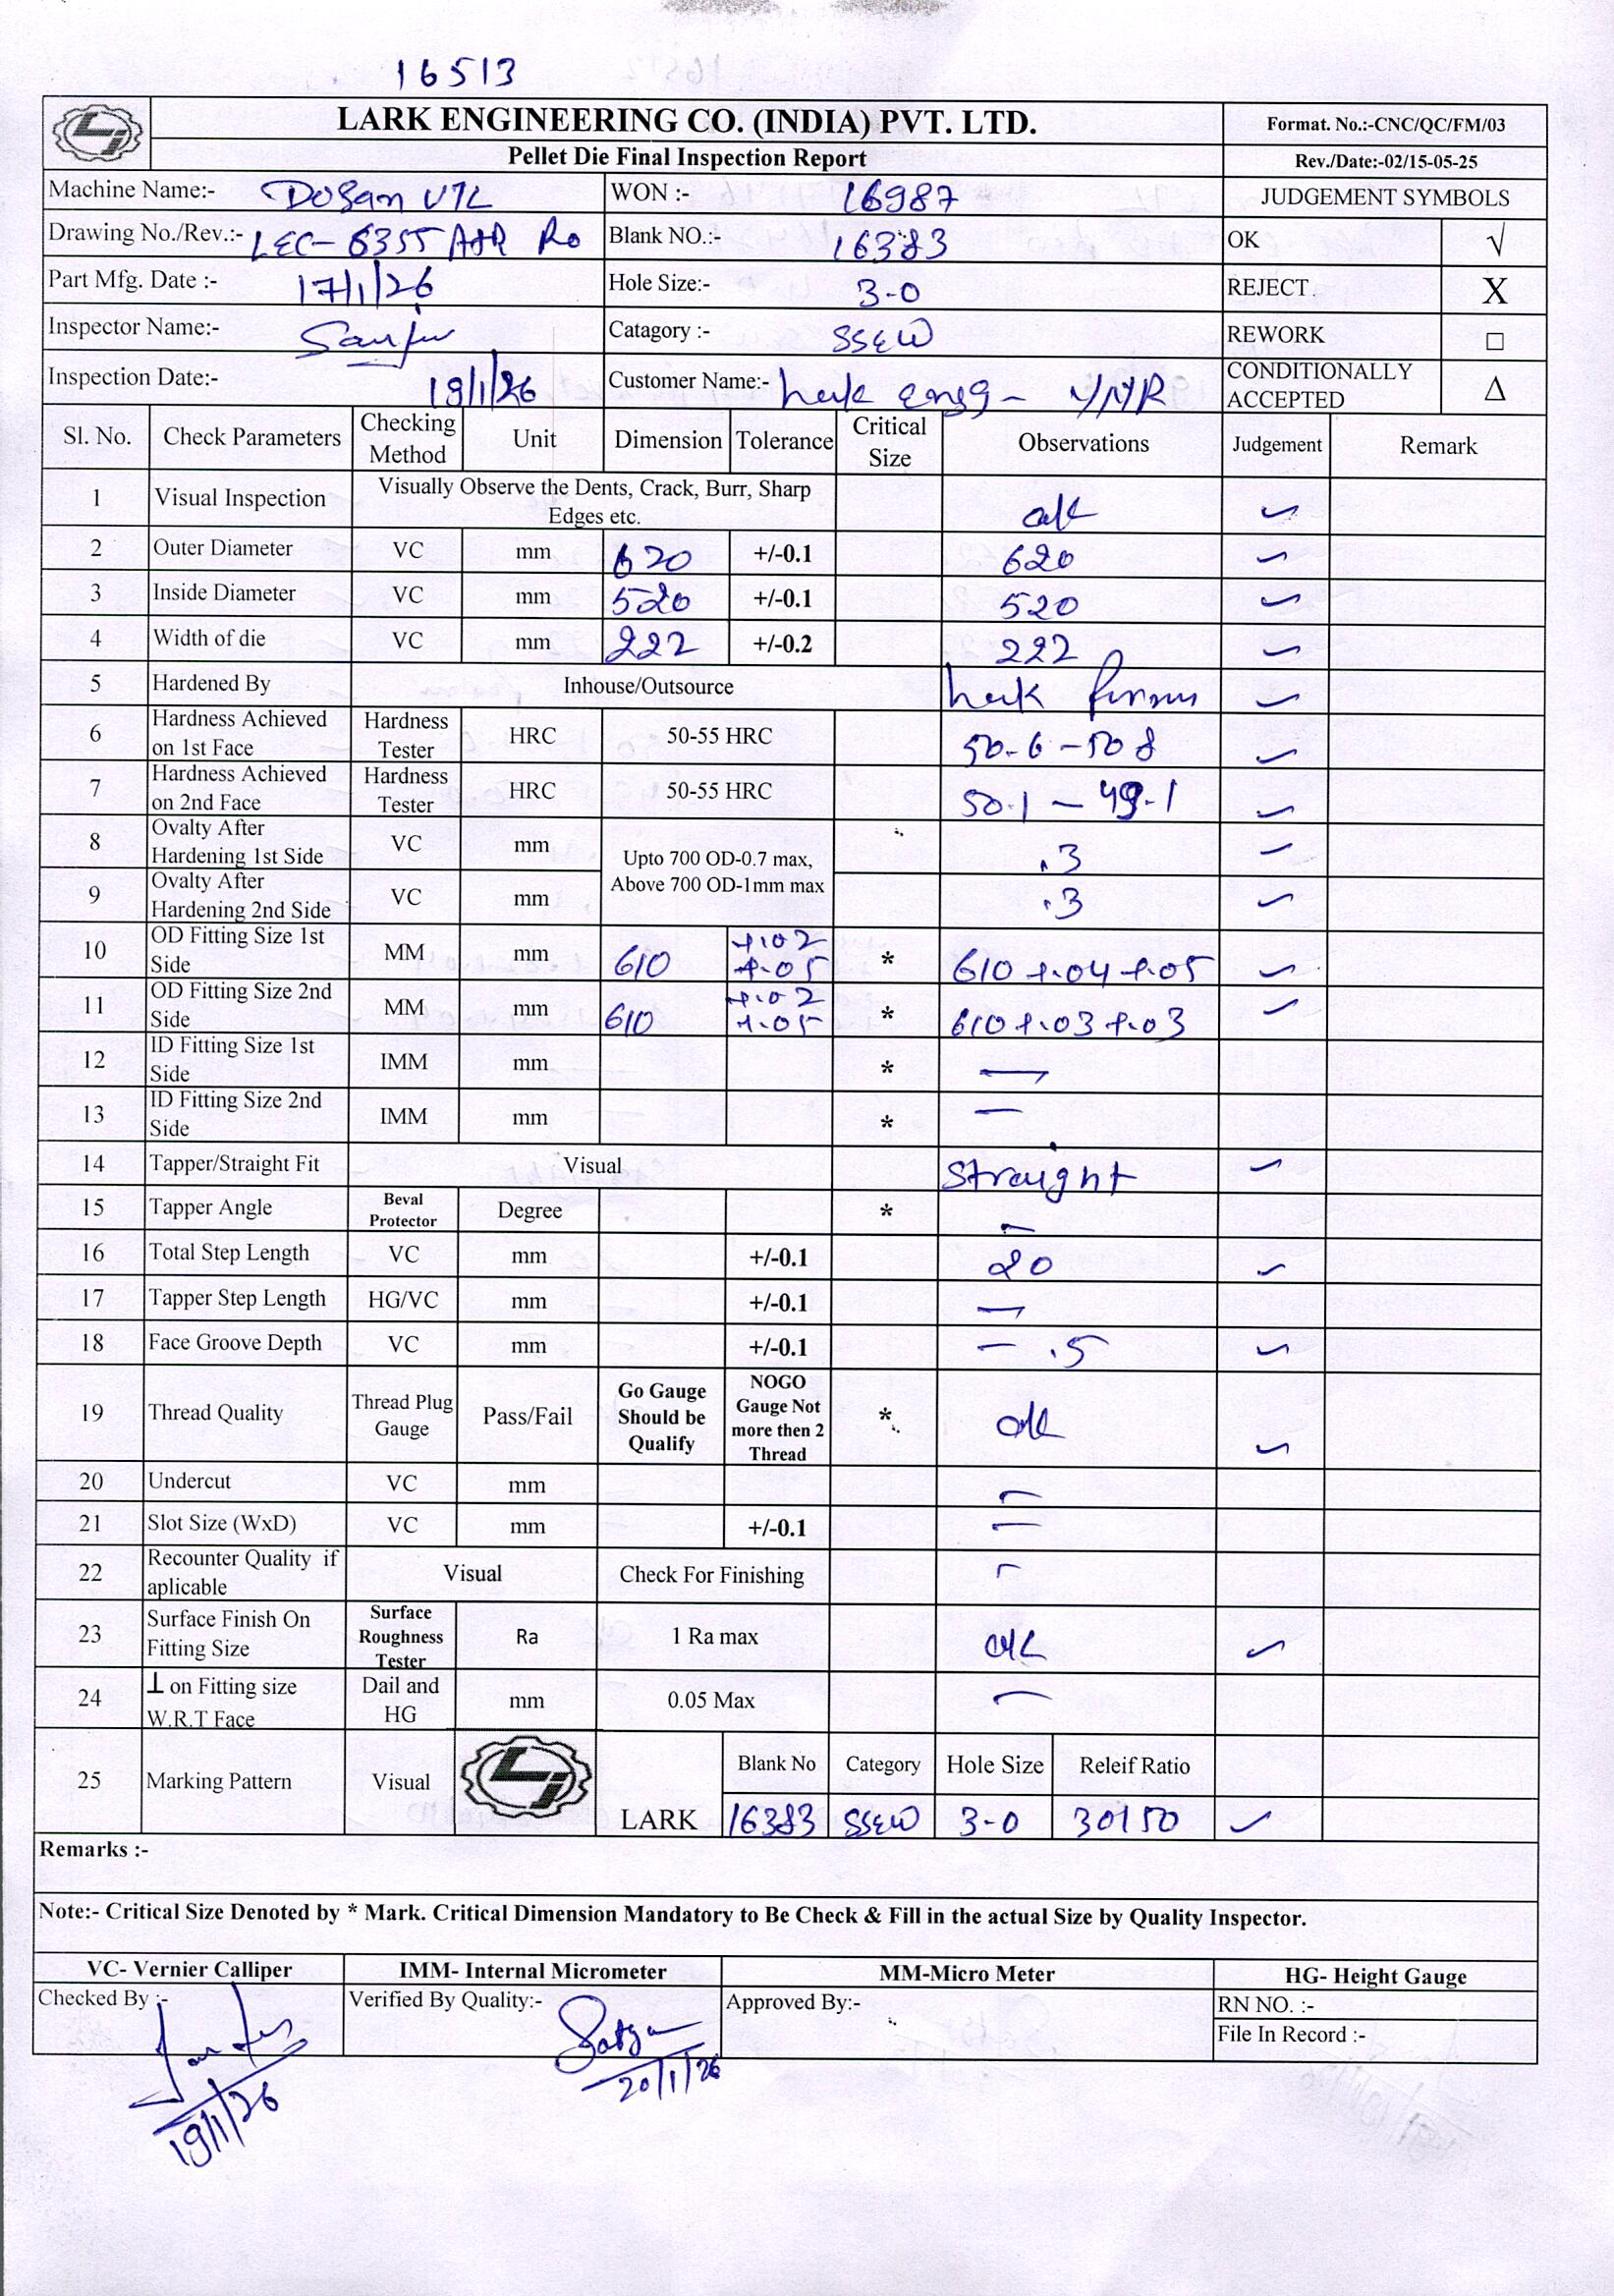 16513
LARK ENGINEERING CO. (INDIA) PVT. LTD.
Format. No.:-CNC/QC/FM/03
Pellet Die Final Inspection Report
Rev./Date:-02/15-05-25
Machine Name:- Dosan VTL WON :- 16987 JUDGEMENT SYMBOLS
Drawing No./Rev.:- LEC-6355 R0 Blank NO.:- 16383 OK √
Part Mfg. Date :- 17/1/26 Hole Size:- 3-0 REJECT X
Inspector Name:- Catagory :- SSEW REWORK □
Inspection Date:- 19/1/26 Customer Name:- engg - YNR CONDITIONALLY ACCEPTED Δ
Sl. No. Check Parameters Checking Method Unit Dimension Tolerance Critical Size Observations Judgement Remark
1 Visual Inspection Visually Observe the Dents, Crack, Burr, Sharp Edges etc. ok ✓
2 Outer Diameter VC mm 620 +/-0.1 620 ✓
3 Inside Diameter VC mm 520 +/-0.1 520 ✓
4 Width of die VC mm 222 +/-0.2 222 ✓
5 Hardened By Inhouse/Outsource ✓
6 Hardness Achieved on 1st Face Hardness Tester HRC 50-55 HRC 50-6 - 50 8 ✓
7 Hardness Achieved on 2nd Face Hardness Tester HRC 50-55 HRC 50.1 - 49.1 ✓
8 Ovalty After Hardening 1st Side VC mm Upto 700 OD-0.7 max, Above 700 OD-1mm max .3 ✓
9 Ovalty After Hardening 2nd Side VC mm .3 ✓
10 OD Fitting Size 1st Side MM mm 610 +.02 +.05 * 610 +.04 +.05 ✓
11 OD Fitting Size 2nd Side MM mm 610 +.02 +.05 * 610 +.03 +.03 ✓
12 ID Fitting Size 1st Side IMM mm * —
13 ID Fitting Size 2nd Side IMM mm * —
14 Tapper/Straight Fit Visual Straight ✓
15 Tapper Angle Beval Protector Degree * —
16 Total Step Length VC mm +/-0.1 20 ✓
17 Tapper Step Length HG/VC mm +/-0.1 —
18 Face Groove Depth VC mm +/-0.1 — .5 ✓
19 Thread Quality Thread Plug Gauge Pass/Fail Go Gauge Should be Qualify NOGO Gauge Not more then 2 Thread * ok ✓
20 Undercut VC mm —
21 Slot Size (WxD) VC mm +/-0.1 —
22 Recounter Quality if aplicable Visual Check For Finishing —
23 Surface Finish On Fitting Size Surface Roughness Tester Ra 1 Ra max ok ✓
24 ⊥ on Fitting size W.R.T Face Dail and HG mm 0.05 Max —
25 Marking Pattern Visual LARK Blank No Category Hole Size Releif Ratio
16383 SSEW 3-0 30150 ✓
Remarks :-
Note:- Critical Size Denoted by * Mark. Critical Dimension Mandatory to Be Check & Fill in the actual Size by Quality Inspector.
VC- Vernier Calliper IMM- Internal Micrometer MM-Micro Meter HG- Height Gauge
Checked By :- Verified By Quality:- Approved By:- RN NO. :-
File In Record :-
20/1/26
19/1/26